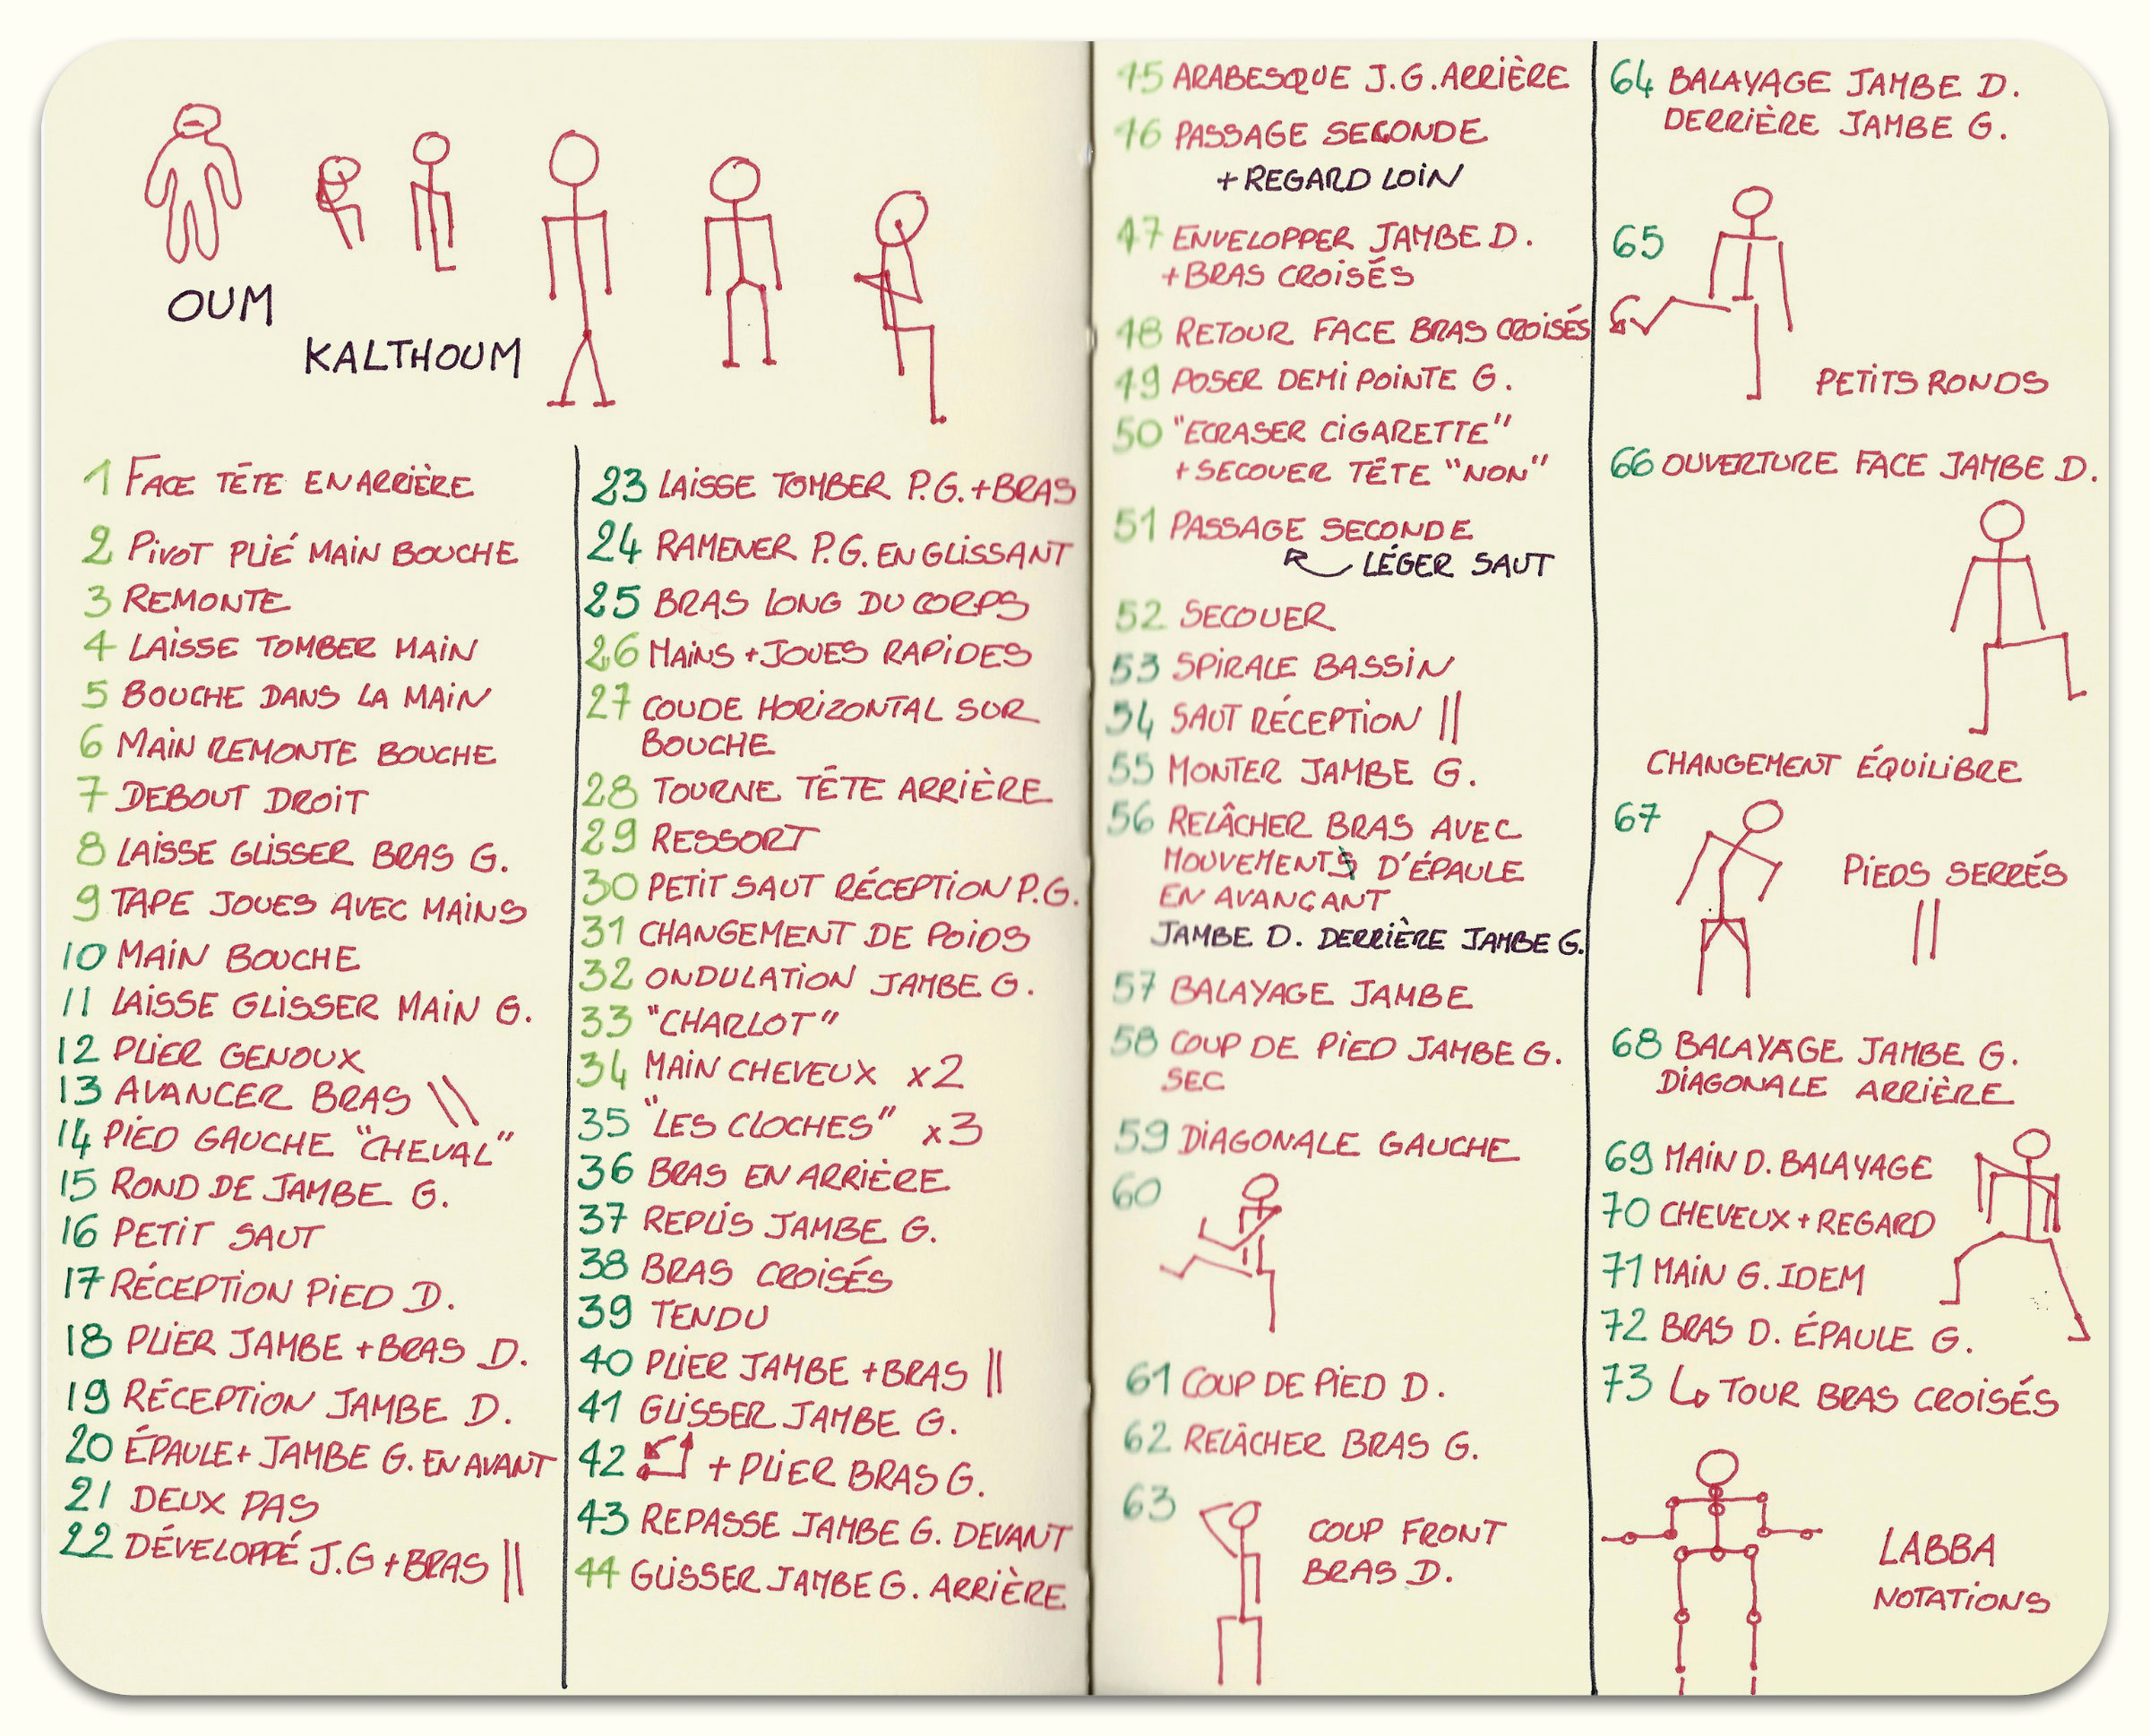 OUM
KALTHOUM
1 FACE TÊTE EN ARRIÈRE
2 PIVOT PLIÉ MAIN BOUCHE
3 REMONTE
4 LAISSE TOMBER MAIN
5 BOUCHE DANS LA MAIN
6 MAIN REMONTE BOUCHE
7 DEBOUT DROIT
8 LAISSE GLISSER BRAS G.
9 TAPE JOUES AVEC MAINS
10 MAIN BOUCHE
11 LAISSE GLISSER MAIN G.
12 PLIER GENOUX
13 AVANCER BRAS \\
14 PIED GAUCHE "CHEVAL"
15 ROND DE JAMBE G.
16 PETIT SAUT
17 RÉCEPTION PIED D.
18 PLIER JAMBE + BRAS D.
19 RÉCEPTION JAMBE D.
20 ÉPAULE + JAMBE G. EN AVANT
21 DEUX PAS
22 DÉVELOPPÉ J.G + BRAS ||
23 LAISSE TOMBER P.G. + BRAS
24 RAMENER P.G. EN GLISSANT
25 BRAS LONG DU CORPS
26 MAINS + JOUES RAPIDES
27 COUDE HORIZONTAL SUR
BOUCHE
28 TOURNE TÊTE ARRIÈRE
29 RESSORT
30 PETIT SAUT RÉCEPTION P.G.
31 CHANGEMENT DE POIDS
32 ONDULATION JAMBE G.
33 "CHARLOT"
34 MAIN CHEVEUX x2
35 "LES CLOCHES" x3
36 BRAS EN ARRIÈRE
37 REPLIS JAMBE G.
38 BRAS CROISÉS
39 TENDU
40 PLIER JAMBE + BRAS ||
41 GLISSER JAMBE G.
42 + PLIER BRAS G.
43 REPASSE JAMBE G. DEVANT
44 GLISSER JAMBE G. ARRIÈRE
45 ARABESQUE J.G. ARRIÈRE
46 PASSAGE SECONDE
+ REGARD LOIN
47 ENVELOPPER JAMBE D.
+ BRAS CROISÉS
48 RETOUR FACE BRAS CROISÉS
49 POSER DEMI POINTE G.
50 "ECRASER CIGARETTE"
+ SECOUER TÊTE "NON"
51 PASSAGE SECONDE
LÉGER SAUT
52 SECOUER
53 SPIRALE BASSIN
54 SAUT RÉCEPTION ||
55 MONTER JAMBE G.
56 RELÂCHER BRAS AVEC
MOUVEMENT D'ÉPAULE
EN AVANÇANT
JAMBE D. DERRIÈRE JAMBE G.
57 BALAYAGE JAMBE
58 COUP DE PIED JAMBE G.
SEC
59 DIAGONALE GAUCHE
60
61 COUP DE PIED D.
62 RELÂCHER BRAS G.
63
COUP FRONT
BRAS D.
64 BALAYAGE JAMBE D.
DERRIÈRE JAMBE G.
65
PETITS RONDS
66 OUVERTURE FACE JAMBE D.
CHANGEMENT ÉQUILIBRE
67
PIEDS SERRÉS
||
68 BALAYAGE JAMBE G.
DIAGONALE ARRIÈRE
69 MAIN D. BALAYAGE
70 CHEVEUX + REGARD
71 MAIN G. IDEM
72 BRAS D. ÉPAULE G.
73 ↳ TOUR BRAS CROISÉS
LABBA
NOTATIONS